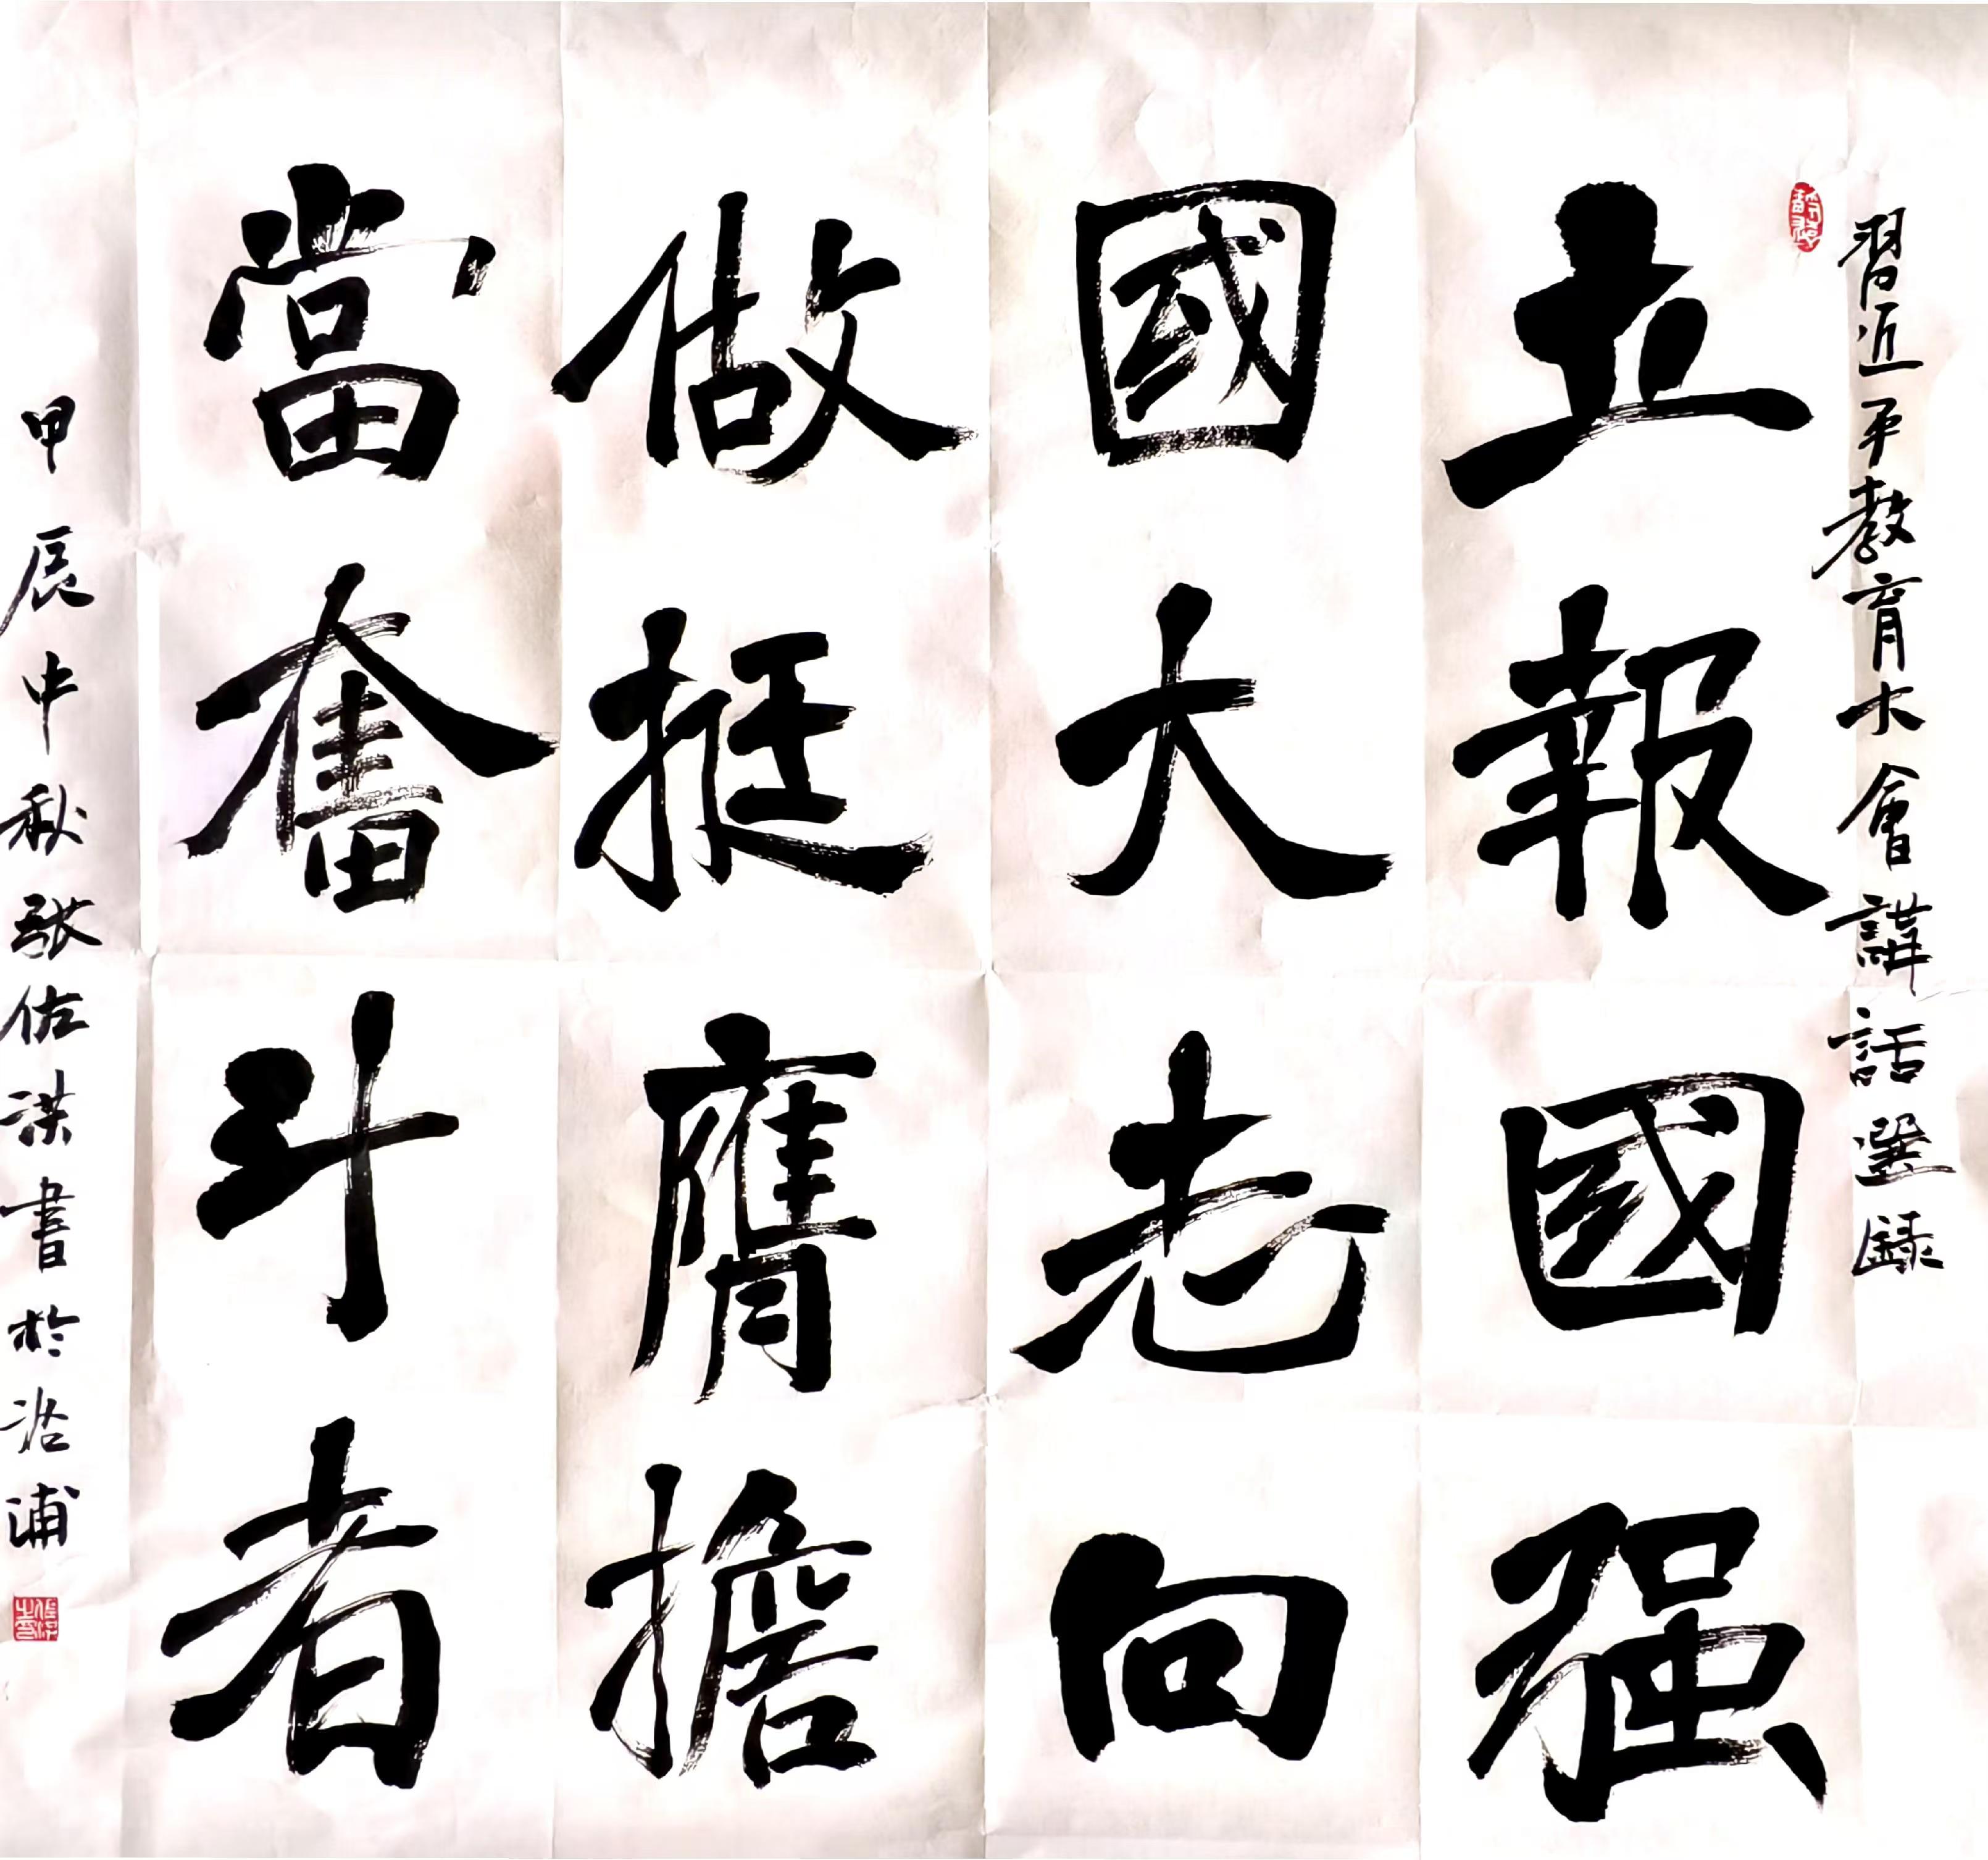 習近平教育大會講話選録
立報國强
國大志向
做挺膺擔
當奮鬥者
甲辰中秋張佐洪書於洺浦